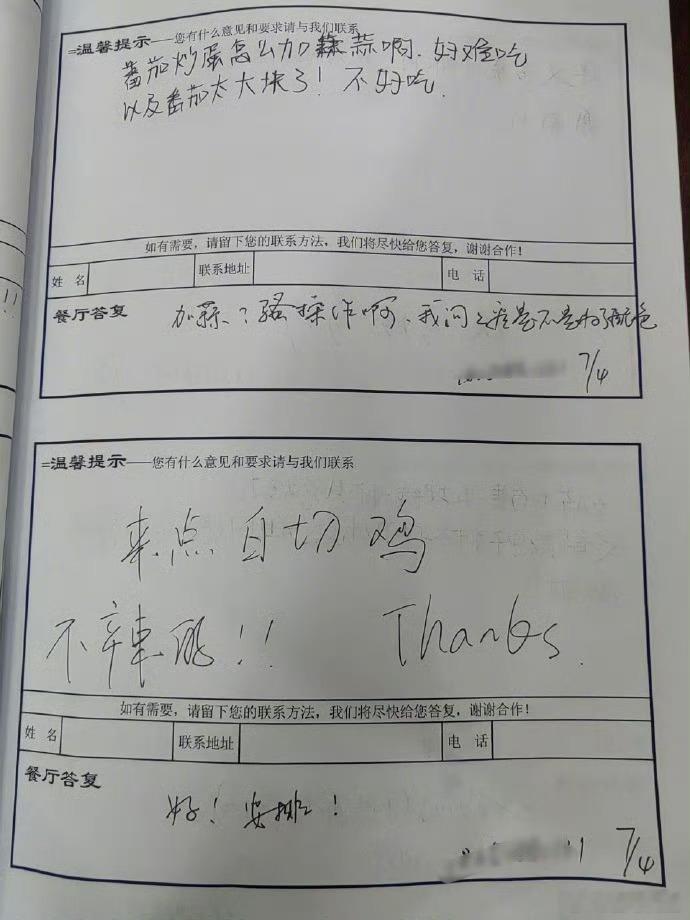 =温馨提示——您有什么意见和要求请与我们联系
番茄炒蛋怎么加蒜啊. 好难吃
以及番茄太大块了! 不好吃.
如有需要,请留下您的联系方法,我们将尽快给您答复,谢谢合作!
姓 名 联系地址 电 话
餐厅答复
加蒜?骚操作啊、我问之后是不是为了配色
7/4
=温馨提示——您有什么意见和要求请与我们联系
来点白切鸡
不辛眼!! Thanks.
如有需要,请留下您的联系方法,我们将尽快给您答复,谢谢合作!
姓 名 联系地址 电 话
餐厅答复
好! 安排!
7/4